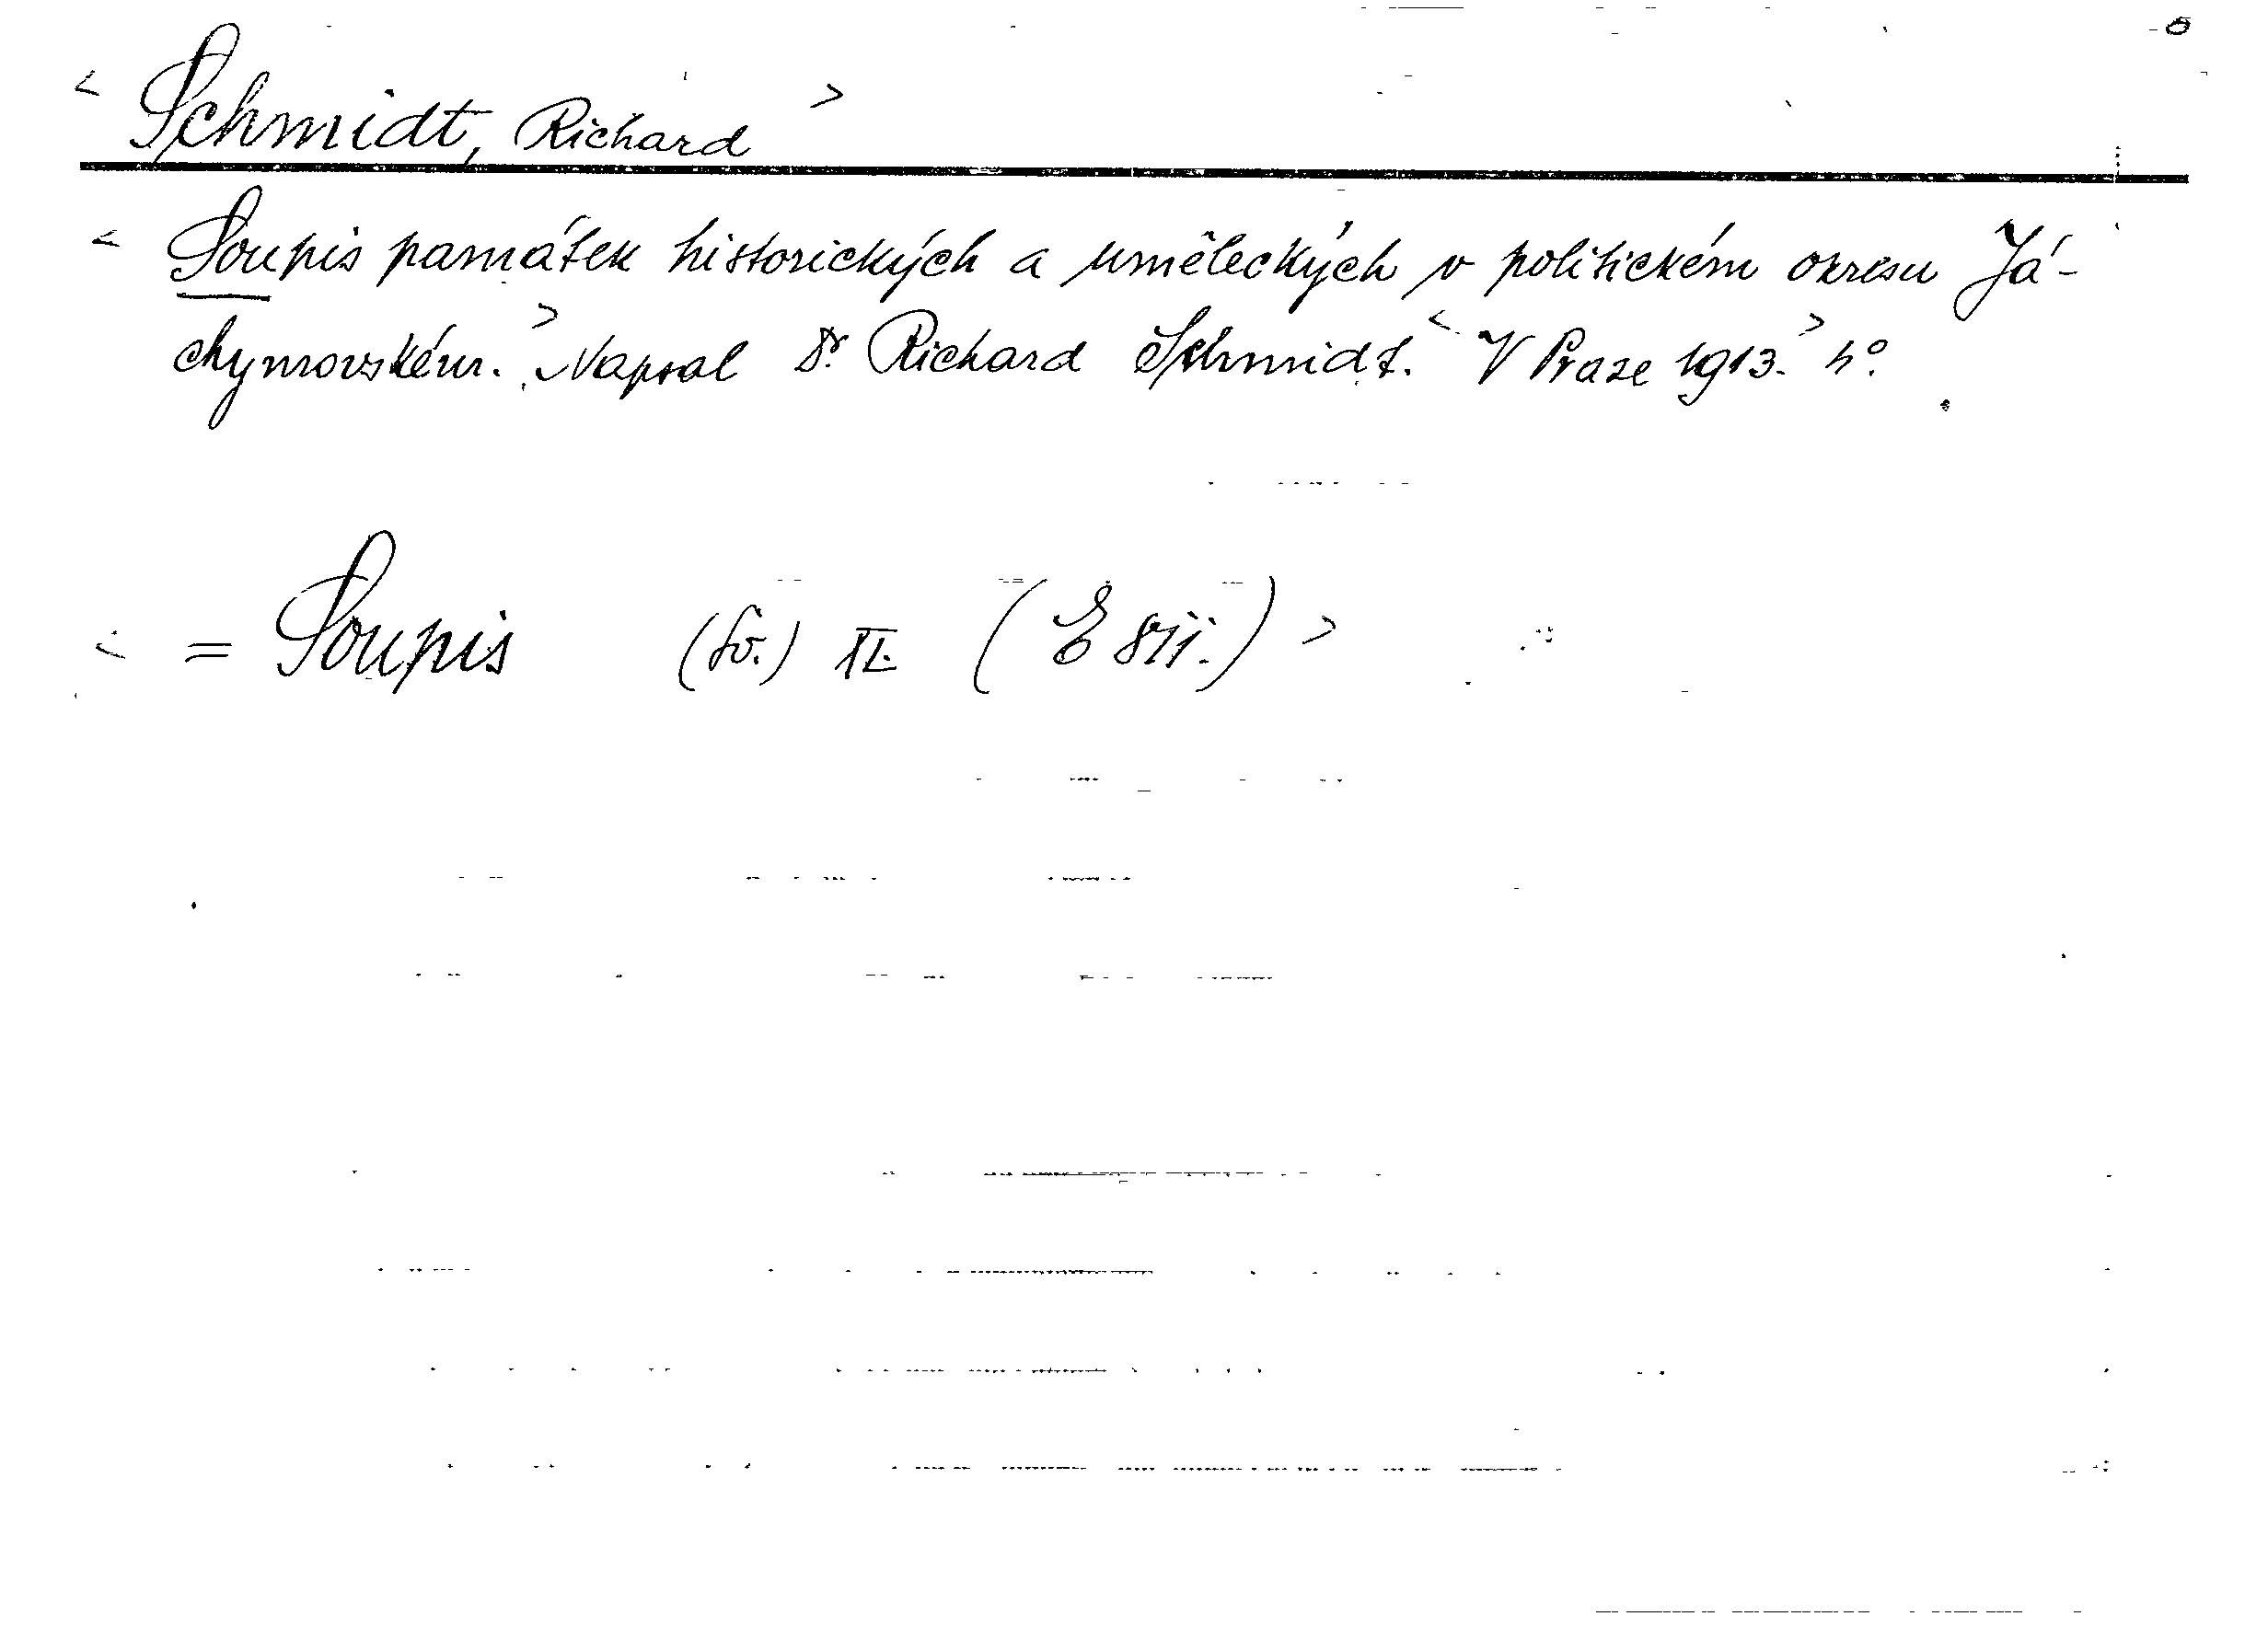 < Schmidt, Richard >
< Soupis památek historických a uměleckých v politickém okresu Já-
chymovském. > Napsal Dr. Richard Schmidt. < V Praze 1913. > 4°.
< = Soupis (sv.) XL. (E 811.) >